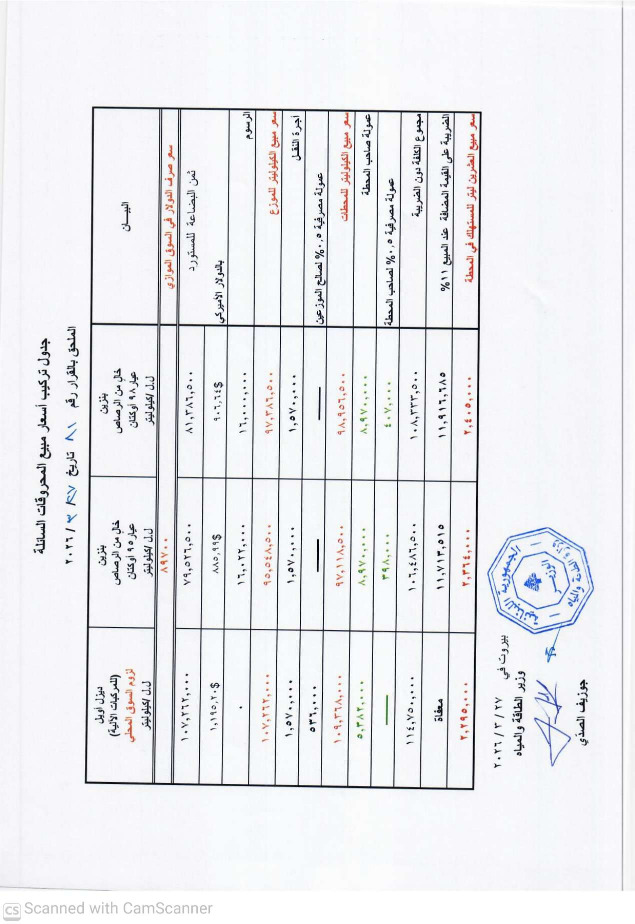 جدول تركيب أسعار مبيع المحروقات السائلة
الملحق بالقرار رقم ٨١ تاريخ ٢٧ / ٣ / ٢٠٢٦
البيــان
بنزين
خالٍ من الرصاص
عيار ٩٨ أوكتان
ل.ل./كيلوليتر
بنزين
خالٍ من الرصاص
عيار ٩٥ أوكتان
ل.ل./كيلوليتر
ديزل أويل
(للمركبات الآلية)
لزوم السوق المحلي
ل.ل./كيلوليتر
سعر صرف الدولار في السوق الموازي ٨٩٧٠٠
ثمن البضاعة للمستورد ٨١,٣٨٦,٥٠٠ ٧٩,٥٢٦,٥٠٠ ١٠٧,٢٦٢,٠٠٠
بالدولار الأميركي ٩٠٦.٦٤$ ٨٨٥.٩٩$ ١,١٩٥.٢٠$
الرسوم ١٦,٠٠٠,٠٠٠ ١٦,٠٢٢,٠٠٠ ٠
سعر مبيع الكيلوليتر للموزع ٩٧,٣٨٦,٥٠٠ ٩٥,٥٤٨,٥٠٠ ١٠٧,٢٦٢,٠٠٠
أجرة النقل ١,٥٧٠,٠٠٠ ١,٥٧٠,٠٠٠ ١,٥٧٠,٠٠٠
عمولة مصرفية ٠,٥% لصالح الموزعين ــــ ــــ ٥٣٦,٠٠٠
سعر مبيع الكيلوليتر للمحطات ٩٨,٩٥٦,٥٠٠ ٩٧,١١٨,٥٠٠ ١٠٩,٣٦٨,٠٠٠
عمولة صاحب المحطة ٨,٩٧٠,٠٠٠ ٨,٩٧٠,٠٠٠ ٥,٣٨٢,٠٠٠
عمولة مصرفية ٠,٥% لصاحب المحطة ٤٠٧,٠٠٠ ٣٩٨,٠٠٠ ــــ
مجموع الكلفة دون الضريبة ١٠٨,٣٣٣,٥٠٠ ١٠٦,٤٨٦,٥٠٠ ١١٤,٧٥٠,٠٠٠
الضريبة على القيمة المضافة عند المبيع ١١% ١١,٩١٦,٦٨٥ ١١,٧١٣,٥١٥ معفاة
سعر مبيع العشرين ليتر للمستهلك في المحطة ٢,٤٠٥,٠٠٠ ٢,٣٦٤,٠٠٠ ٢,٢٩٥,٠٠٠
بيروت في ٢٧ / ٣ / ٢٠٢٦
وزير الطاقة والمياه
جوزيف الصدي
الجمهورية اللبنانية
وزارة الطاقة والمياه
الوزير
CS Scanned with CamScanner